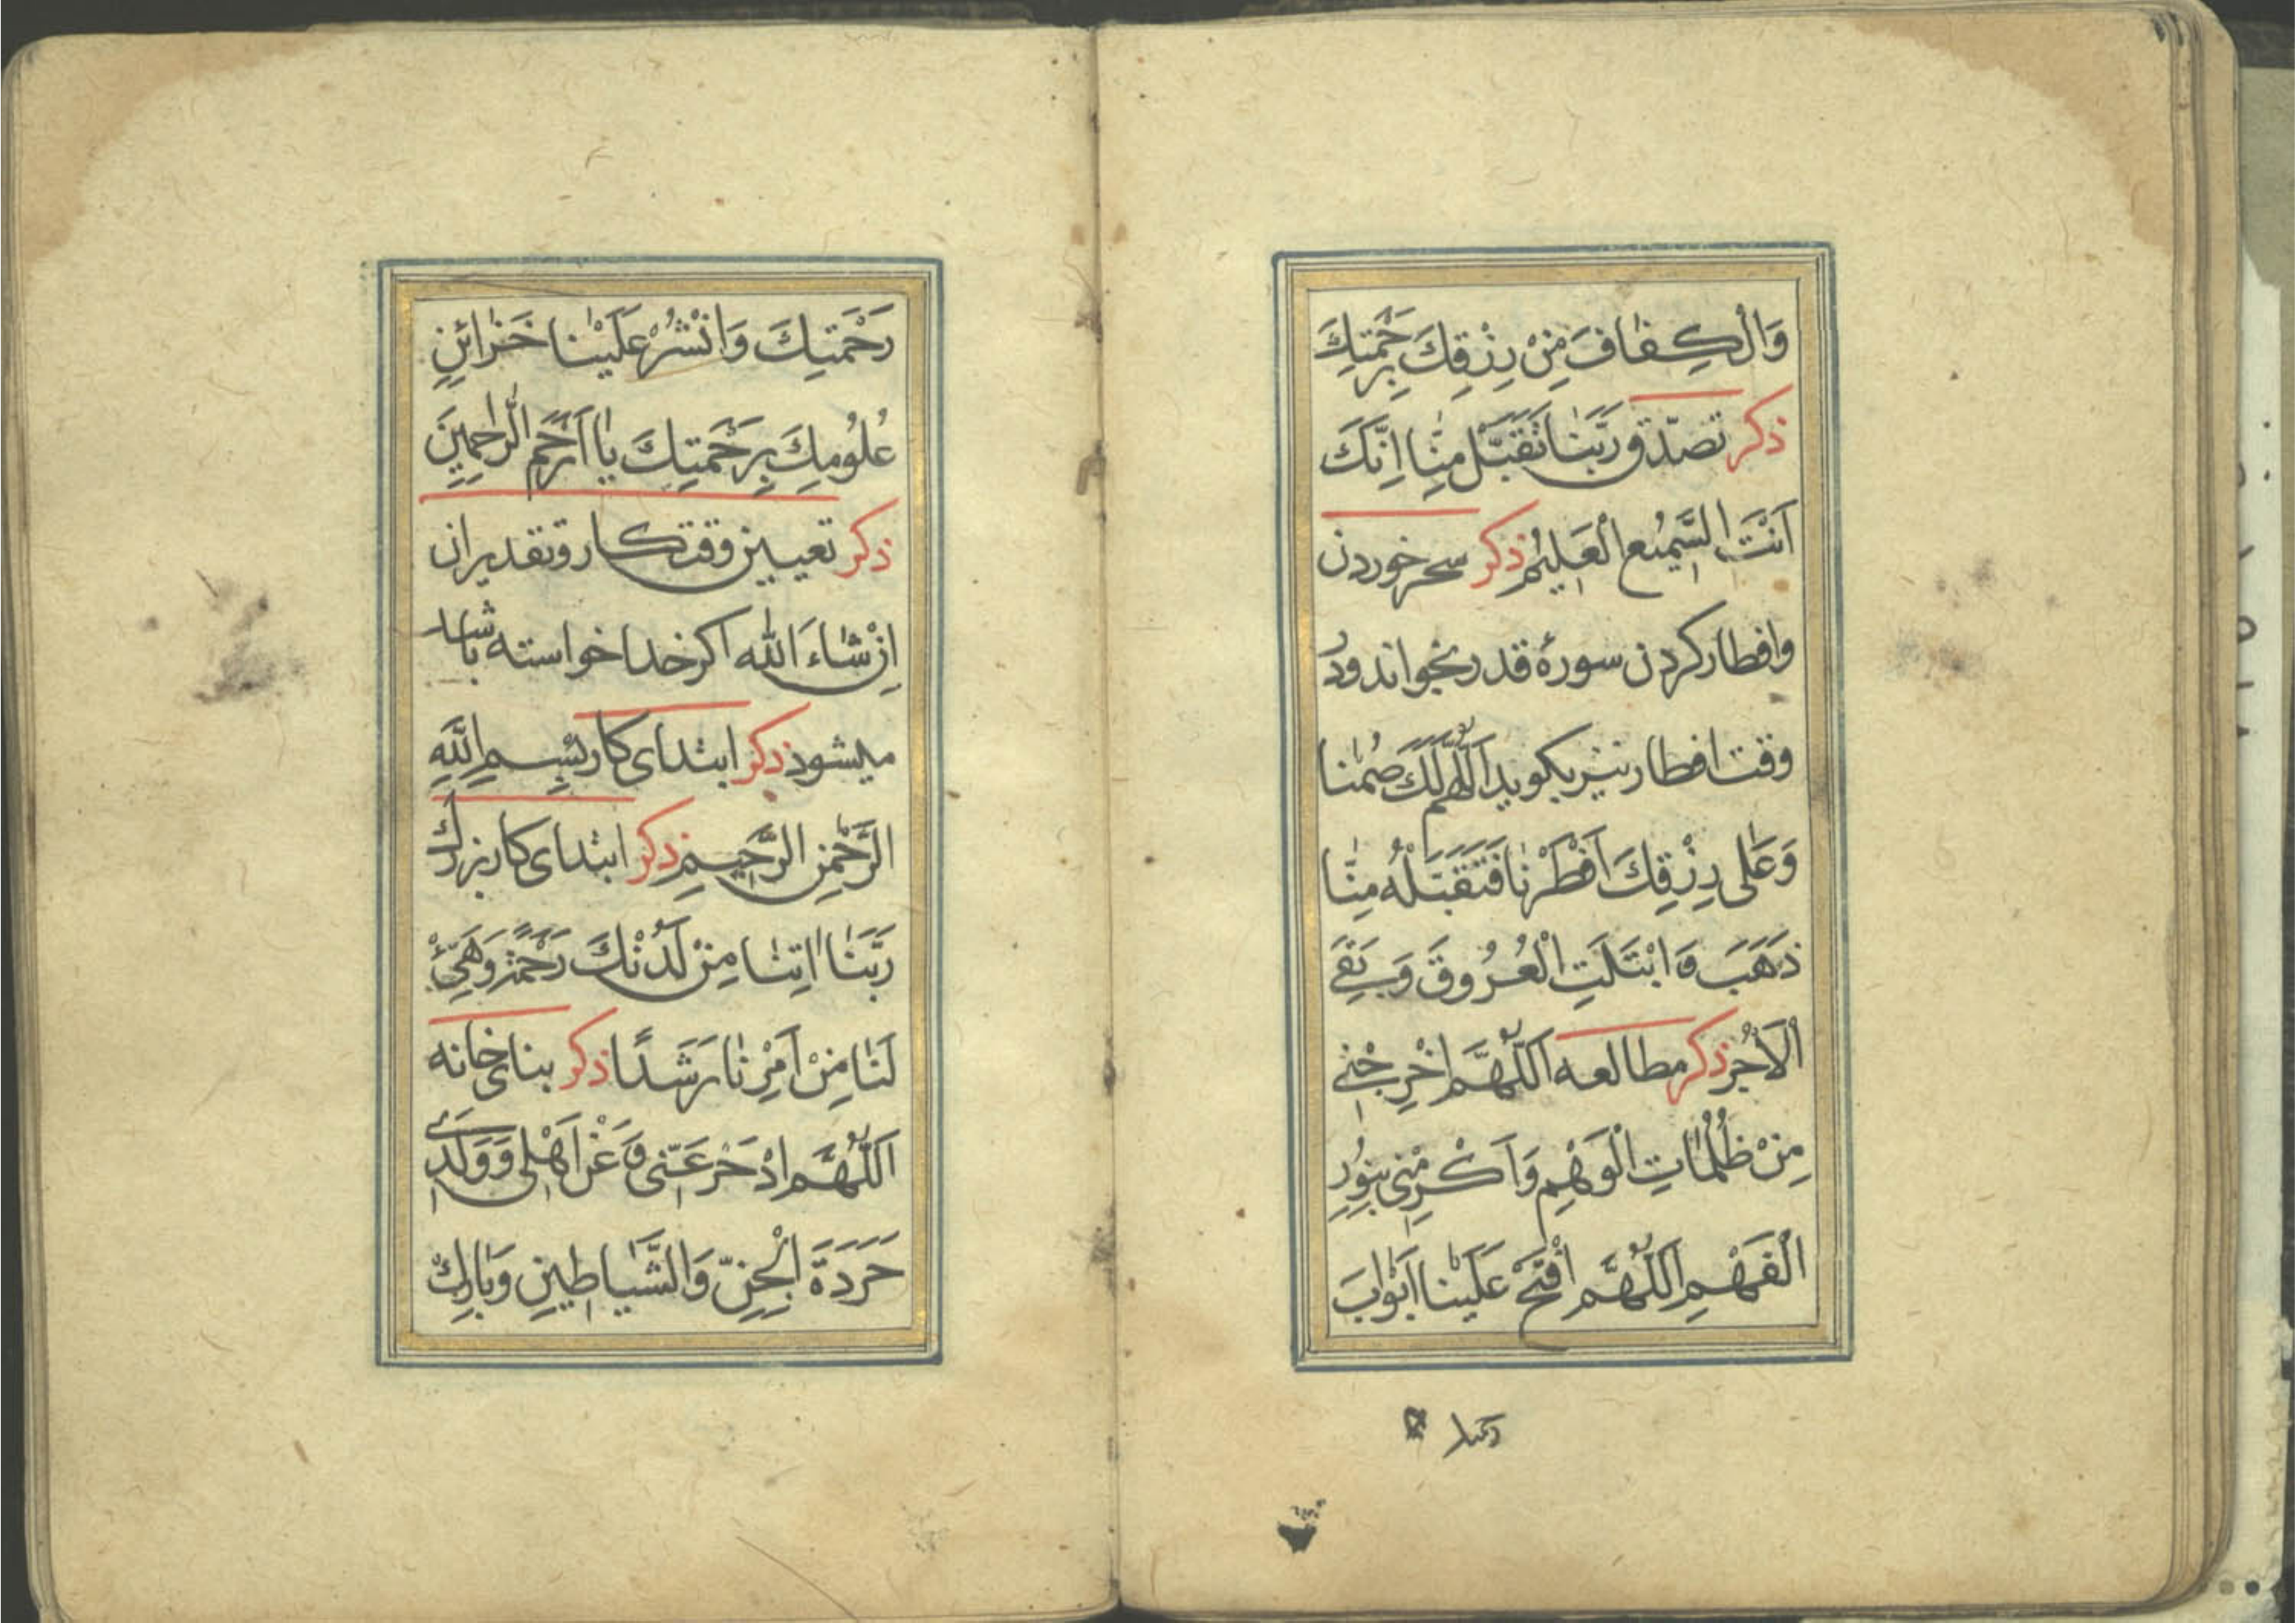 وَالْكِفٰافَ مِنْ رِزْقِكَ بِرَحْمَتِكَ
ذكر تصدّق رَبَّنٰا تَقَبَّلْ مِنّٰا اِنَّكَ
اَنْتَ السَّمیعُ الْعَلیمُ ذكر سحر خوردن
وافطار كردن سورۀ قدر بخواند ودر
وقت افطار نیز بكوید اَللّٰهُمَّ لَكَ صُمْنٰا
وَعَلٰی رِزْقِكَ اَفْطَرْنٰا فَتَقَبَّلْهُ مِنّٰا
ذَهَبَ وَابْتَلَتِ الْعُرُوقَ وَبَقِیَ
الْاَجْرُ ذكر مطالعه اَللّٰهُمَّ اَخْرِجْنی
مِنْ ظُلُمٰاتِ الْوَهْمِ وَاَكْرِمْنی بِنُورِ
الْفَهْمِ اَللّٰهُمَّ افْتَحْ عَلَیْنٰا اَبْوٰابَ
رَحْمَتِكَ وَانْشُرْ عَلَیْنٰا خَزٰائِنِ
عُلُومِكَ بِرَحْمَتِكَ یٰا اَرْحَمَ الرّٰاحِمِینَ
ذكر تعیین وقت كار وتقدیر ان
اِنْشٰاءَ اَللّٰه اكر خدا خواسته باشد
میشود ذكر ابتدای كار بِسْمِ اللّٰهِ
الرَّحْمٰنِ الرَّحِیمِ ذكر ابتدای كار بزرك
رَبَّنٰا اٰتِنٰا مِنْ لَدُنْكَ رَحْمَةً وَهَیِّئْ
لَنٰا مِنْ اَمْرِنٰا رَشَدًا ذكر بنای خانه
اَللّٰهُمَّ ادْحَرْ عَنّی وَعَنْ اَهْلی وَوَلَدی
حَرَدَةَ الْجِنِّ وَالشَّیٰاطینِ وَبٰارِكْ